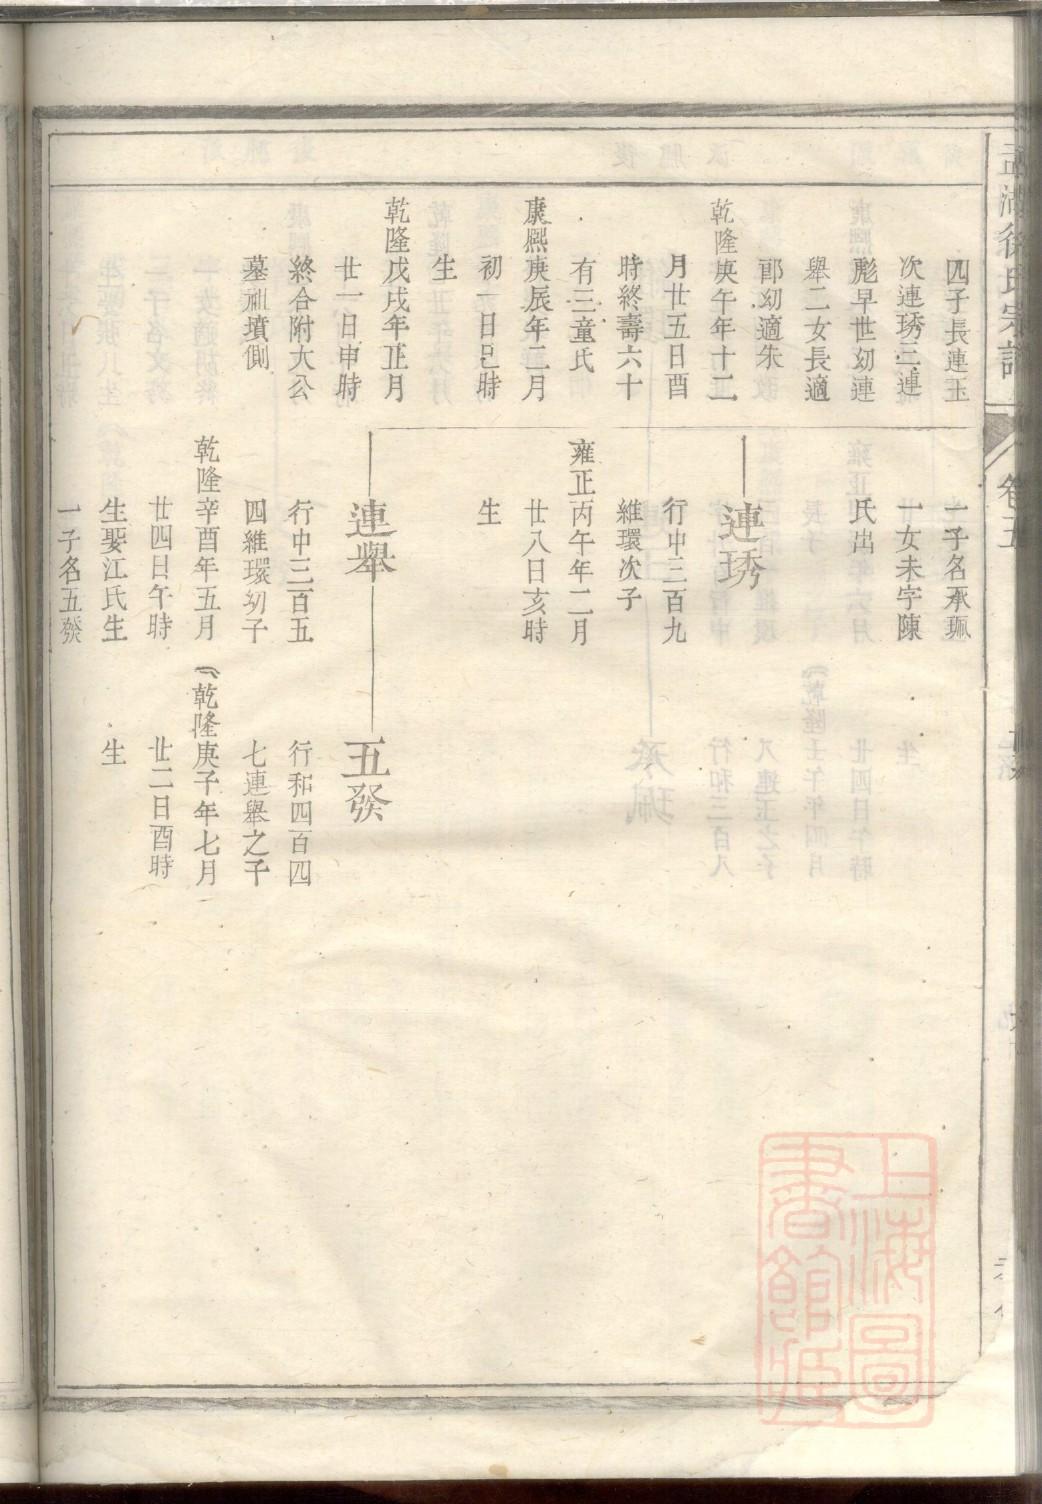 孟湖徐氏宗譜
卷五
四子長連玉
次連琇三連
彪早世幼連
舉二女長適
鄆幼適朱
乾隆庚午年十二
月廿五日酉
時終壽六十
有三童氏
康熙庚辰年二月
初一日巳時
生
乾隆戊戌年正月
廿一日申時
終合附大公
墓祖墳側
一子名承珮
一女未字陳
氏出
連琇
行中三百九
維環次子
雍正丙午年二月
廿八日亥時
生
連舉
行中三百五
四維環幼子
乾隆辛酉年五月
廿四日午時
生娶江氏生
一子名五發
五發
行和四百四
七連舉之子
乾隆庚子年七月
廿二日酉時
生
上海圖
書館藏